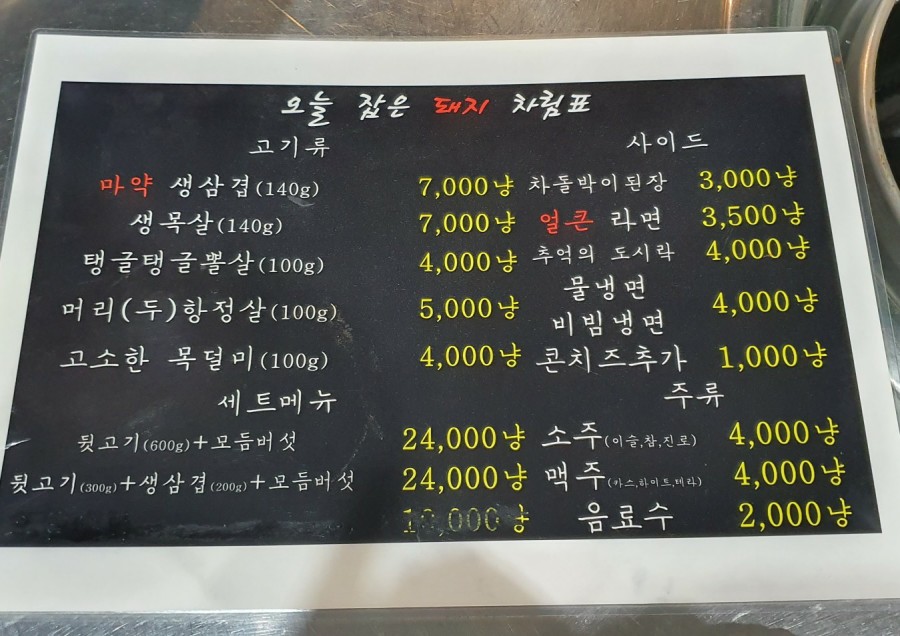 오늘 잡은 돼지 차림표
고기류
마약 생삼겹(140g) 7,000냥
생목살(140g) 7,000냥
탱글탱글뽈살(100g) 4,000냥
머리(두)항정살(100g) 5,000냥
고소한 목덜미(100g) 4,000냥
세트메뉴
뒷고기(600g)+모듬버섯 24,000냥
뒷고기(300g)+생삼겹(200g)+모듬버섯 24,000냥
사이드
차돌박이된장 3,000냥
얼큰 라면 3,500냥
추억의 도시락 4,000냥
물냉면
비빔냉면 4,000냥
콘치즈추가 1,000냥
주류
소주(이슬,참,진로) 4,000냥
맥주(카스,하이트,테라) 4,000냥
음료수 2,000냥